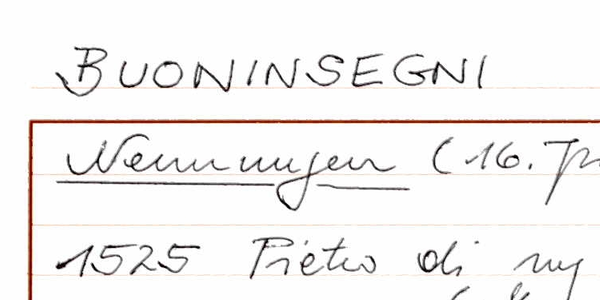 BUONINSEGNI
Nennungen (16. Jh
1525 Pietro di